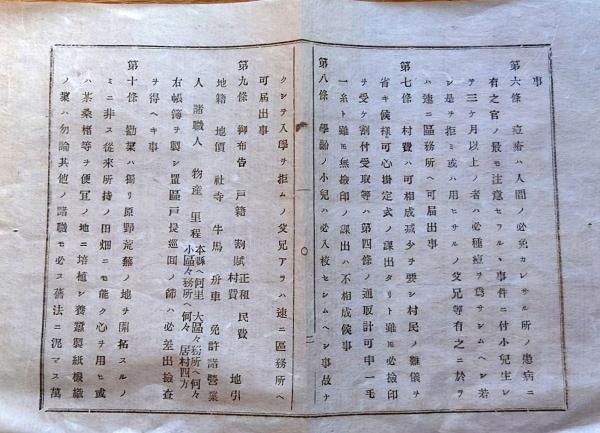 事
第六條 痘瘡ハ人間ノ必免カレサル所ノ患病ニ
有之官ノ最モ注意セラルヽ事件ニ付小兒生レ
テ三ケ月以上ノ者ハ必種痘ヲ爲サシムヘシ若
シ是ヲ拒ミ或ハ用ヒサルノ父兄等有之ニ於テ
ハ速ニ區務所ヘ可届出事
第七條 村費ハ可相成减少ヲ要シ村民ノ難儀ヲ
省キ候樣可心掛定式ノ課出タリト雖モ必檢印
ヲ受ケ割付受取等ハ第四條ノ通取計可申一毛
一糸ト雖モ無檢印ノ課出ハ不相成候事
第八條 學齡ノ小兒ハ必入校セシムヘシ事故ナ
二
クシテ入學ヲ拒ムノ父兄アラハ速ニ區務所ヘ
可届出事
第九條 御布告 戸籍 割賦 正租 村費 民費 地引
地籍 地價 社寺 牛馬 舟車 免許諸營業
人 諸職人 物産 里程 本縣ヘ何里 大區々務所ヘ何々 小區々務所ヘ何々 居村四方
右帳簿ヲ製シ置區戸長巡囘ノ節ハ必差出檢査
ヲ得ヘキ事
第十條 勸業ハ獨リ原野荒蕪ノ地ヲ開拓スルノ
ミニ非ス從來所持ノ田畑ニモ能ク心ヲ用ヒ或
ハ茶桑楮等ヲ便宜ノ地ニ培植シ養蠶製紙機織
ノ業ハ勿論其他ノ諸職モ必ス舊法ニ泥マス萬